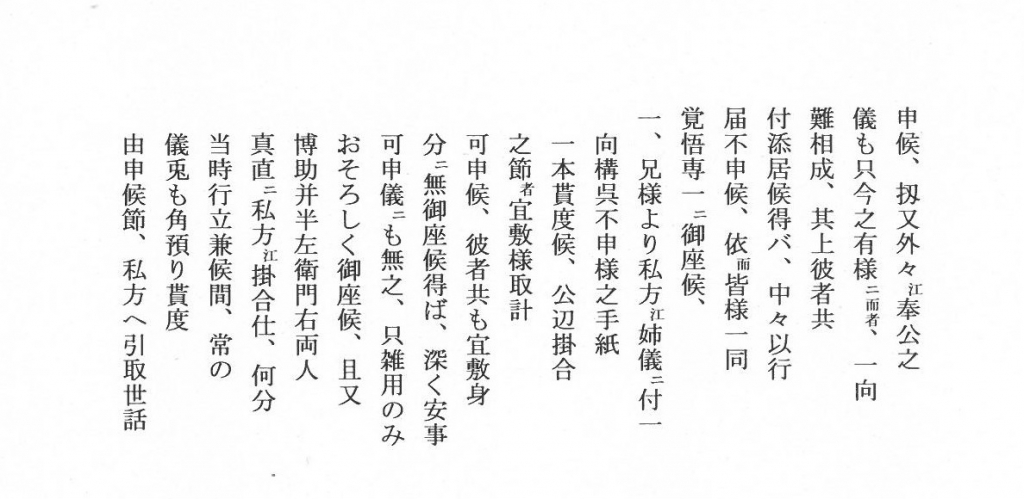 申候、扨又外々江奉公之
儀も只今之有様ニ而者、一向
難相成、其上彼者共
付添居候得バ、中々以行
届不申候、依而皆様一同
覚悟専一ニ御座候、
一、兄様より私方江姉儀ニ付一
向構呉不申様之手紙
一本貰度候、公辺掛合
之節者宜敷様取計
可申候、彼者共も宜敷身
分ニ無御座候得ば、深く安事
可申儀ニも無之、只雑用のみ
おそろしく御座候、且又
博助并半左衛門右両人
真直ニ私方江掛合仕、何分
当時行立兼候間、常の
儀兎も角預り貰度
由申候節、私方へ引取世話